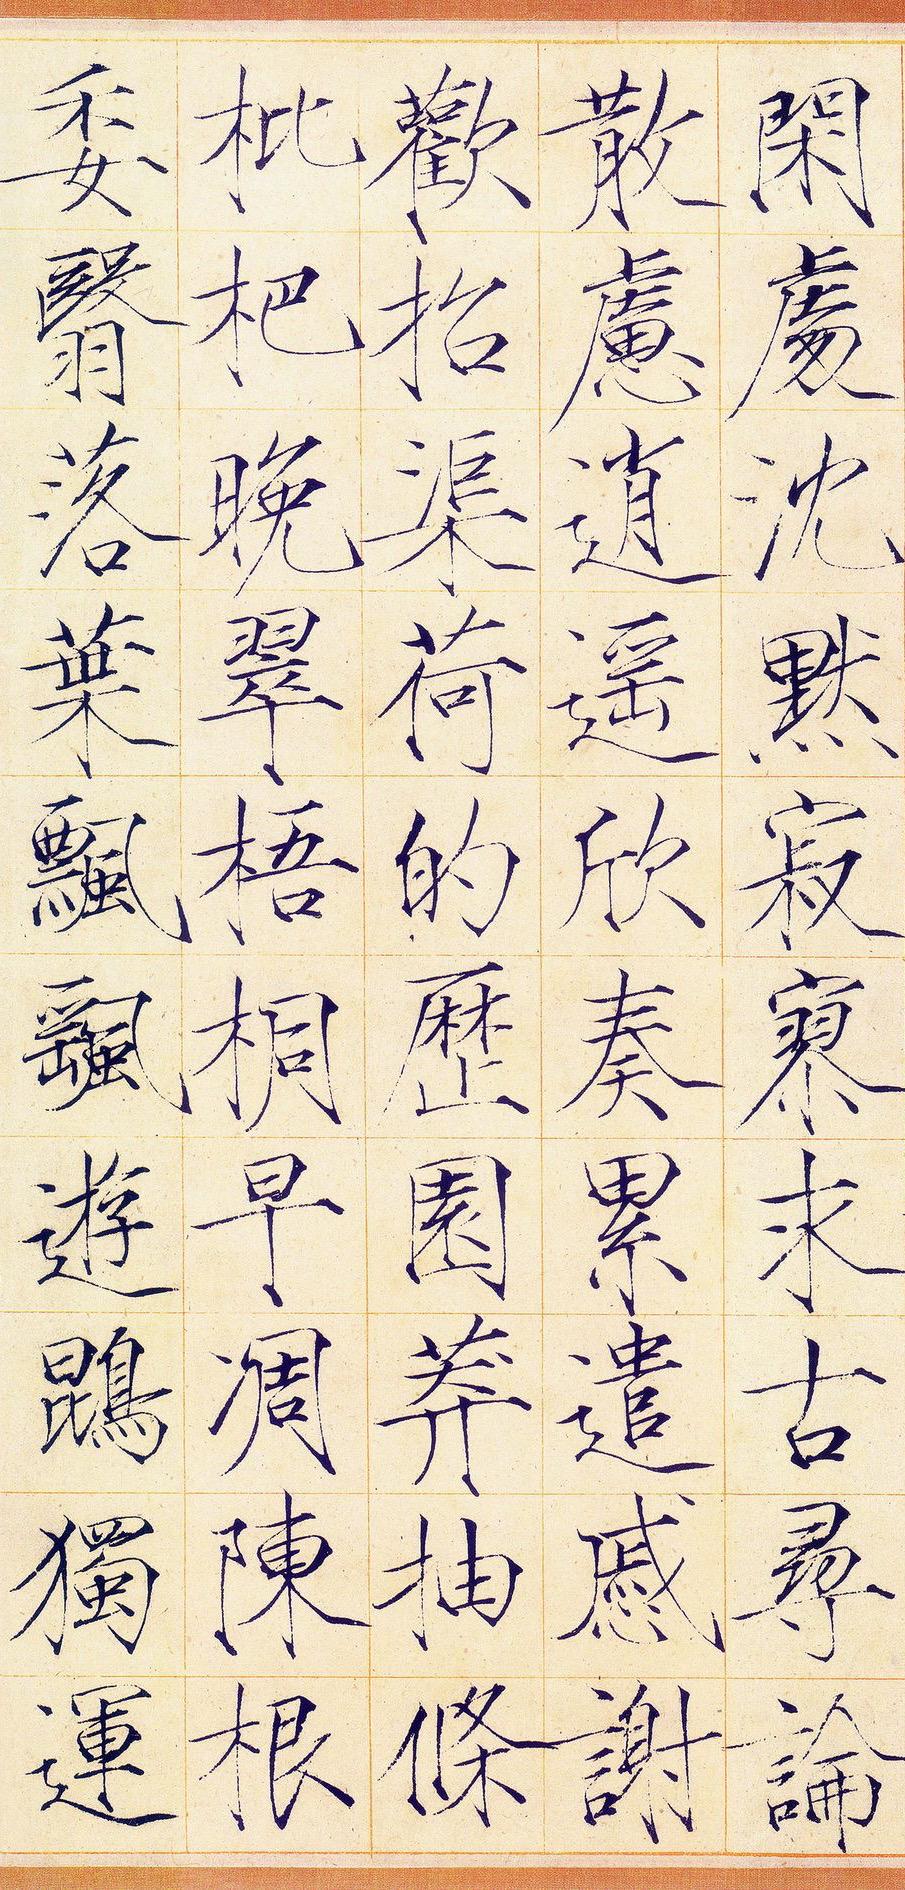 閑處沈默寂寥求古尋論
散慮逍遥欣奏累遣慼謝
歡招渠荷的歷園莽抽條
枇杷晚翠梧桐早凋陳根
委翳落葉飄颻遊鵾獨運